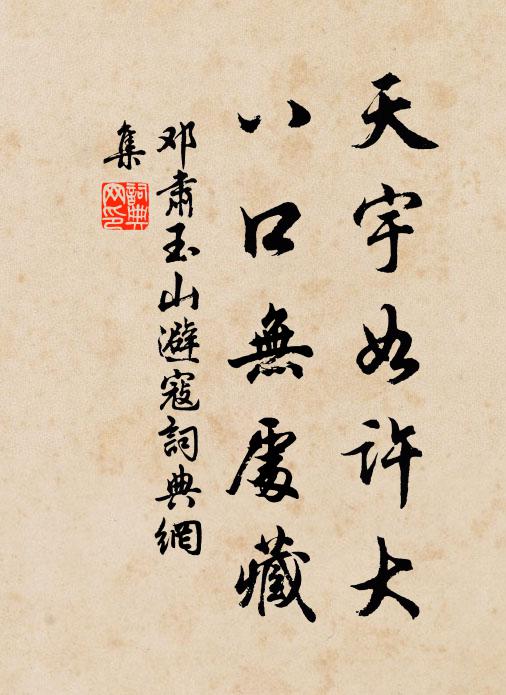 天宇如许大
八口無處藏
邓肃玉山避寇詞典網
集
詞典
网印